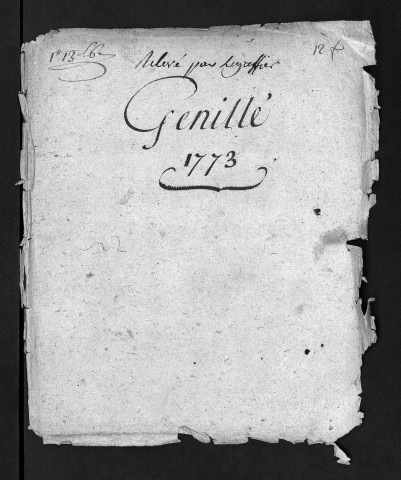 Relevé par Legreffier
Genillé
1773